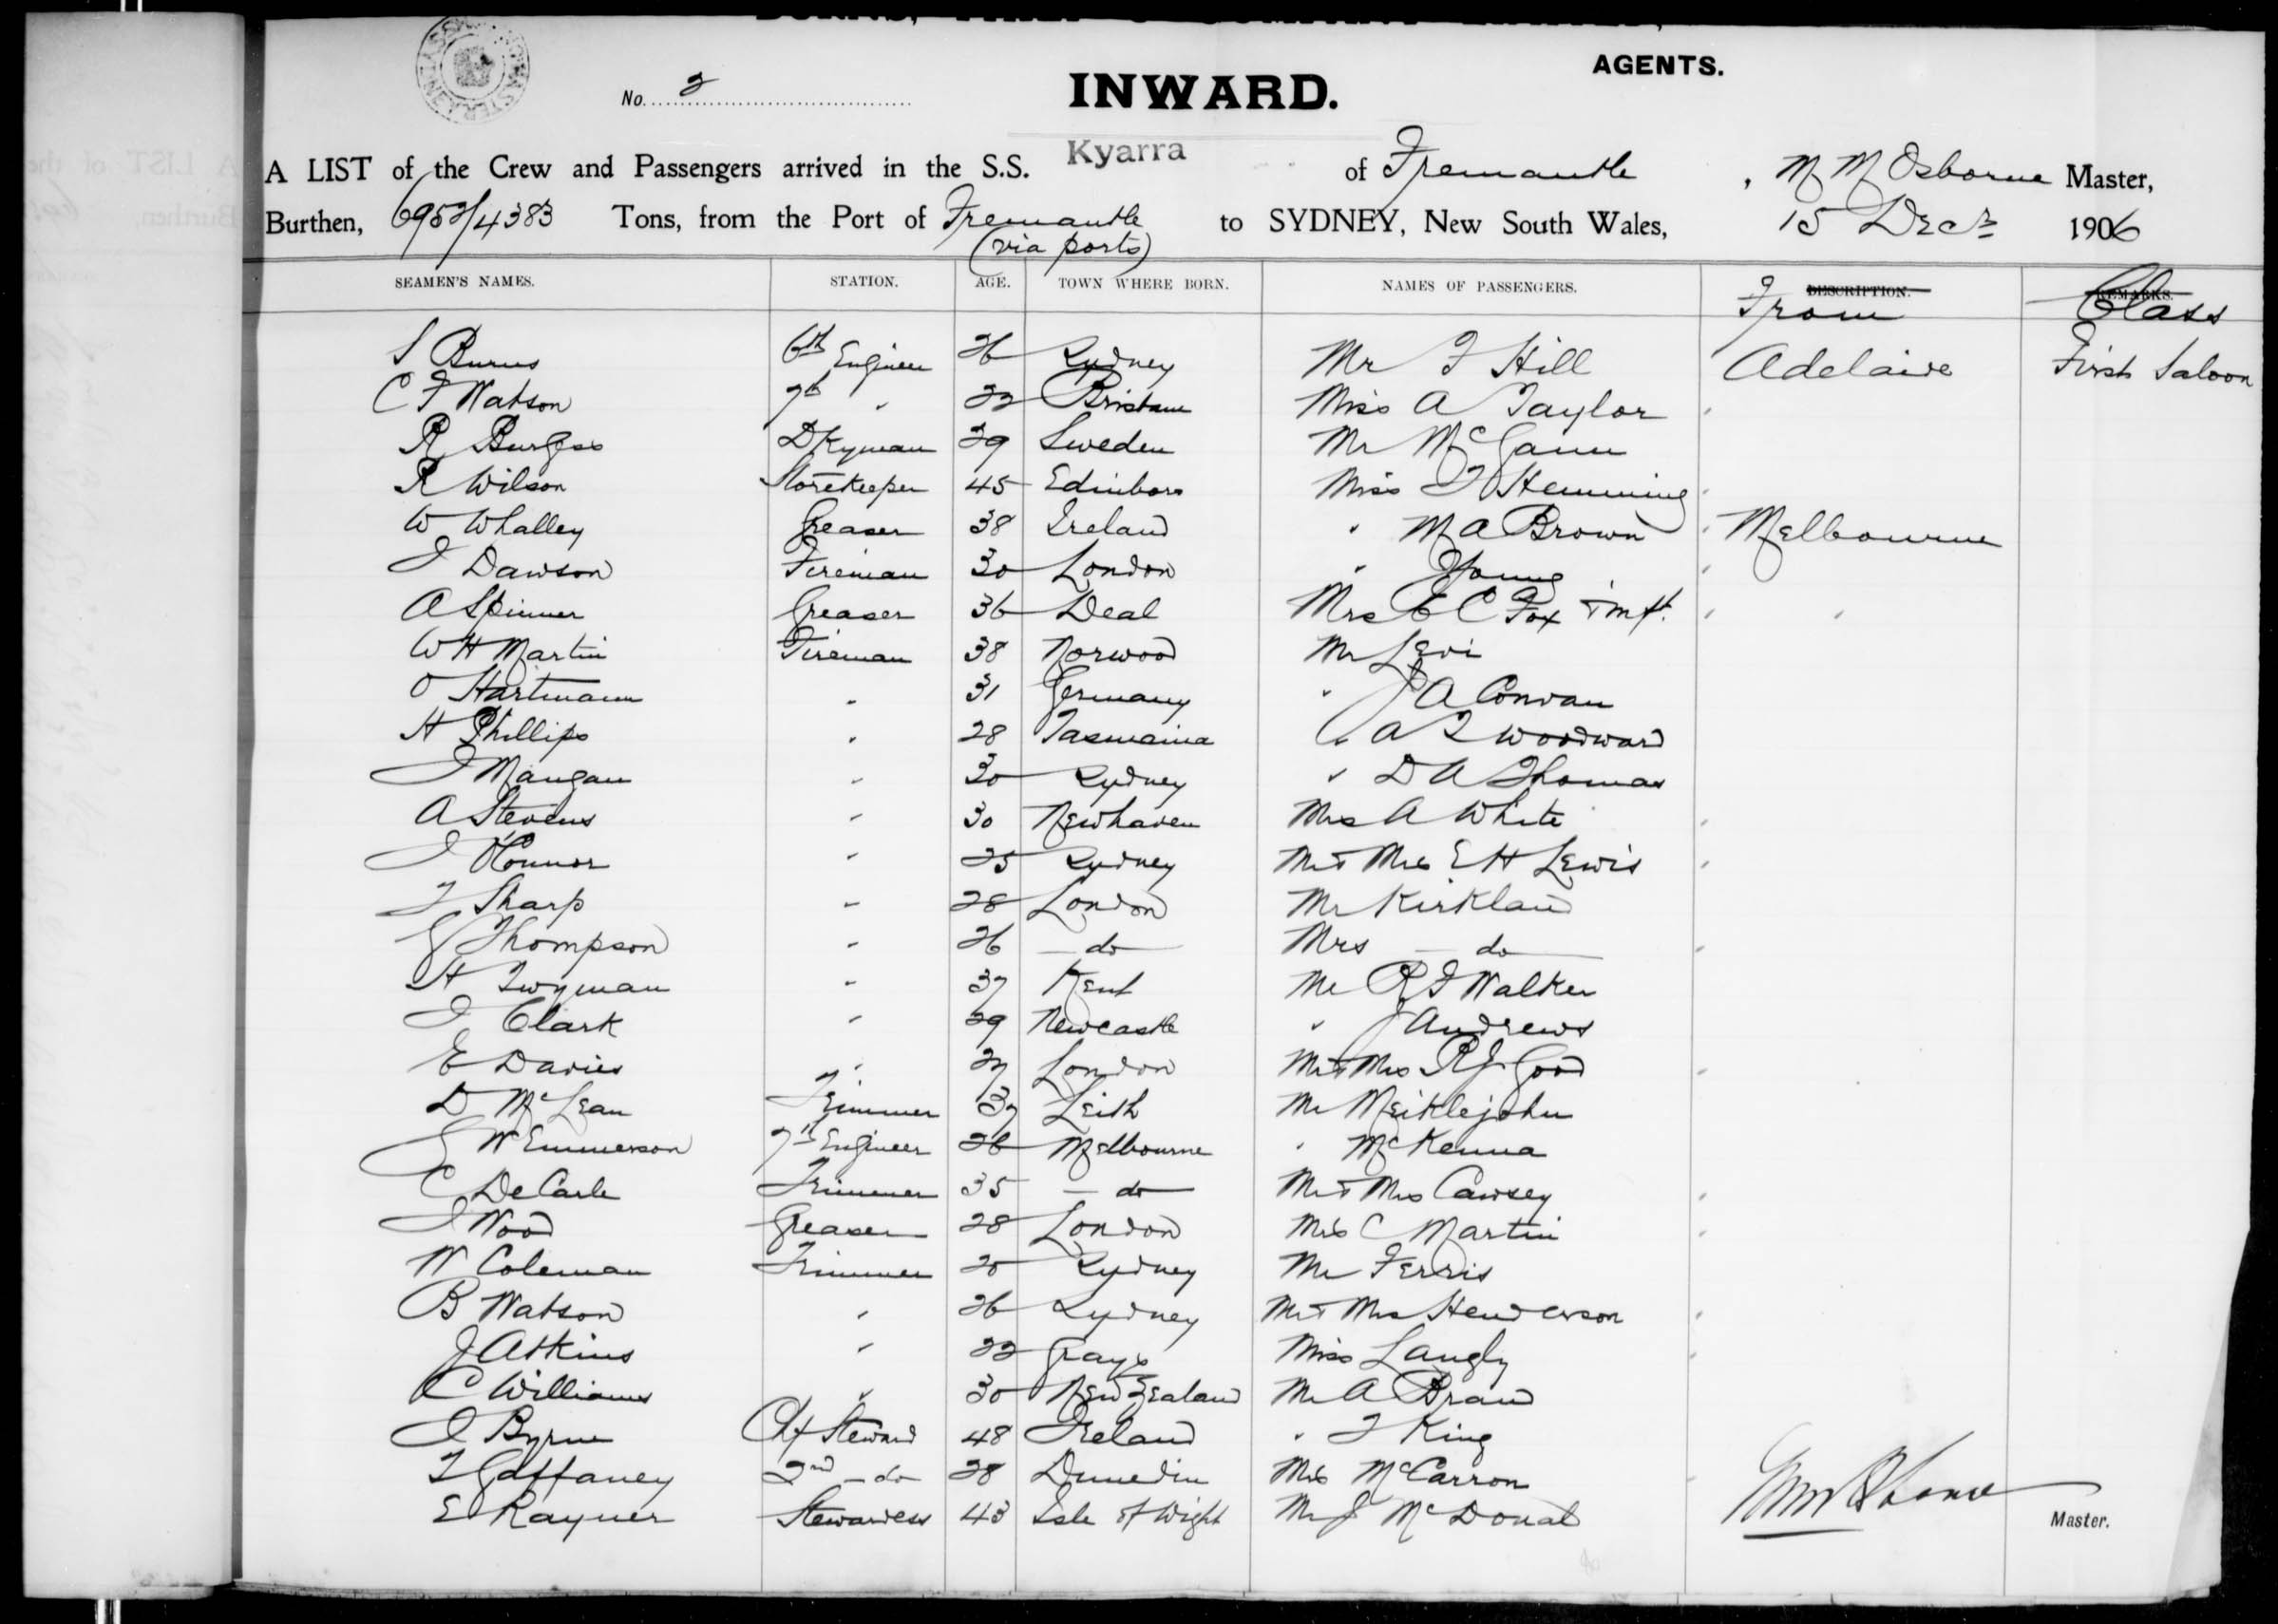 AGENTS.
No. 2
INWARD.
A LIST of the Crew and Passengers arrived in the S.S. Kyarra of Fremantle, M M Osborne Master,
Burthen, 6953/4383 Tons, from the Port of Fremantle (via ports) to SYDNEY, New South Wales, 15 Decr 1906
SEAMEN'S NAMES. STATION. AGE. TOWN WHERE BORN. NAMES OF PASSENGERS. DESCRIPTION. From REMARKS. Class
S Burns 6th Engineer 26 Sydney Mr F Hill Adelaide First Saloon
C F Watson 7th " 22 Brisbane Miss A Taylor "
R Burgess Dkyman 29 Sweden Mr McGann
R Wilson Storekeeper 45 Edinboro Miss F Hemming "
W Whalley Greaser 38 Ireland " M A Brown " Melbourne
J Dawson Fireman 30 London " Young "
A Spinner Greaser 36 Deal Mrs E C Fox & inft. " "
W H Martin Fireman 38 Norwood Mr Levi
O Hartmann " 31 Germany " J A Conran
H Phillips " 28 Tasmania " A T Woodward
J Mangan " 30 Sydney " D A Thomas
A Stevens " 30 Newhaven Mrs A White "
J O'Connor " 25 Sydney Mr & Mrs E H Lewis "
T Sharp " 28 London Mr Kirkland
G Thompson " 26 do Mrs do "
H Twyman " 37 Kent Mr R F Walker
J Clark " 29 Newcastle " J Andrews
E Davies " 27 London Mr & Mrs R J Good "
D McLean Trimmer 37 Leith Mr Meiklejohn
G W Emmerson 7th Engineer 26 Melbourne " McKenna
C DeCarle Trimmer 35 do Mr & Mrs Cawsey "
J Wood Greaser 28 London Mrs C Martin "
W Coleman Trimmer 20 Sydney Mr Ferris
B Watson " 26 Sydney Mr & Mrs Henderson "
J Atkins " 22 Grays Miss Langly "
C Williams " 30 New Zealand Mr A Brand
J Byrne Chf Steward 48 Ireland " T King
T Gaffaney 2nd do 28 Dunedin Mrs McCarron
E Rayner Stewardess 43 Isle of Wight Mr J McDonald
Master.